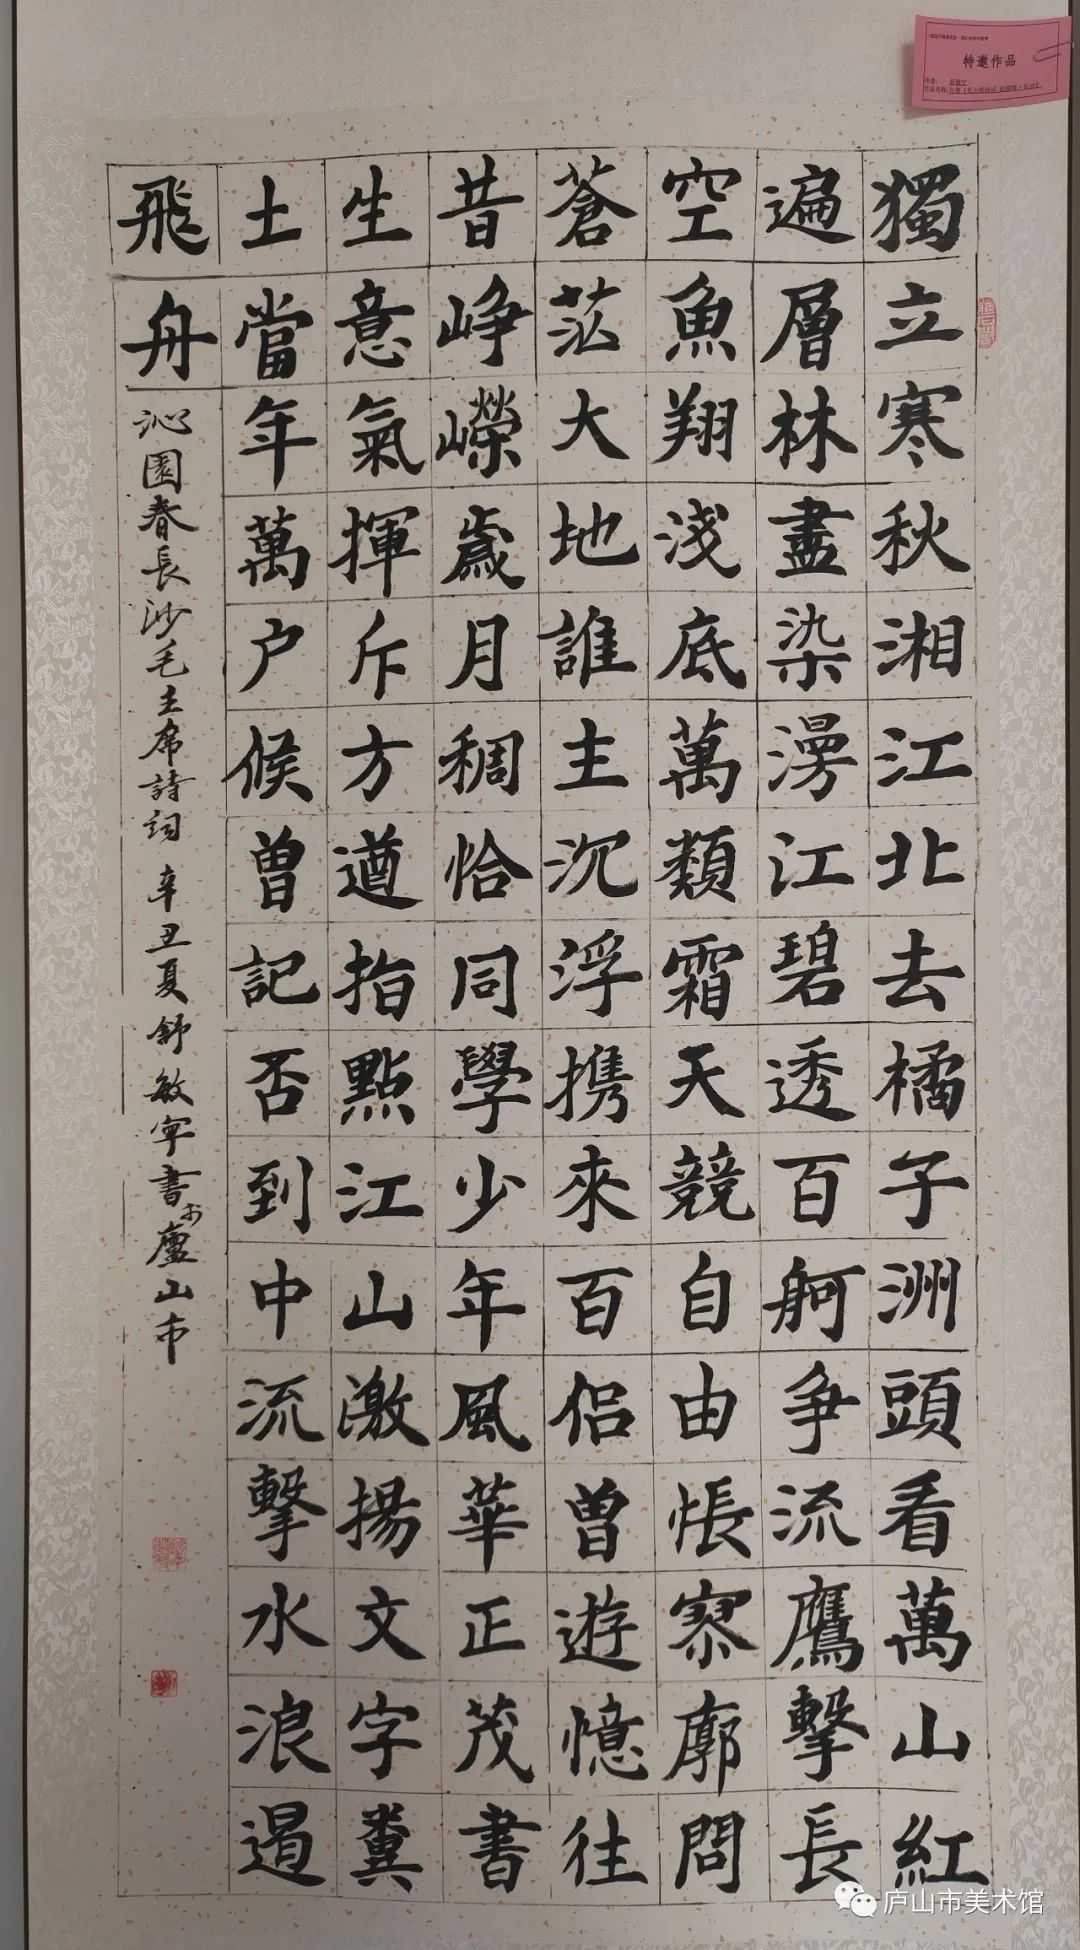 獨立寒秋湘江北去橘子洲頭看萬山紅
遍層林盡染漫江碧透百舸爭流鷹擊長
空魚翔淺底萬類霜天競自由悵寥廓問
蒼茫大地誰主沉浮攜來百侶曾遊憶往
昔崢嶸歲月稠恰同學少年風華正茂書
生意氣揮斥方遒指點江山激揚文字糞
土當年萬户侯曾記否到中流擊水浪遏
飛舟
沁園春長沙毛主席詩詞 辛丑夏舒敏寧書於廬山市
特邀作品
庐山市美术馆